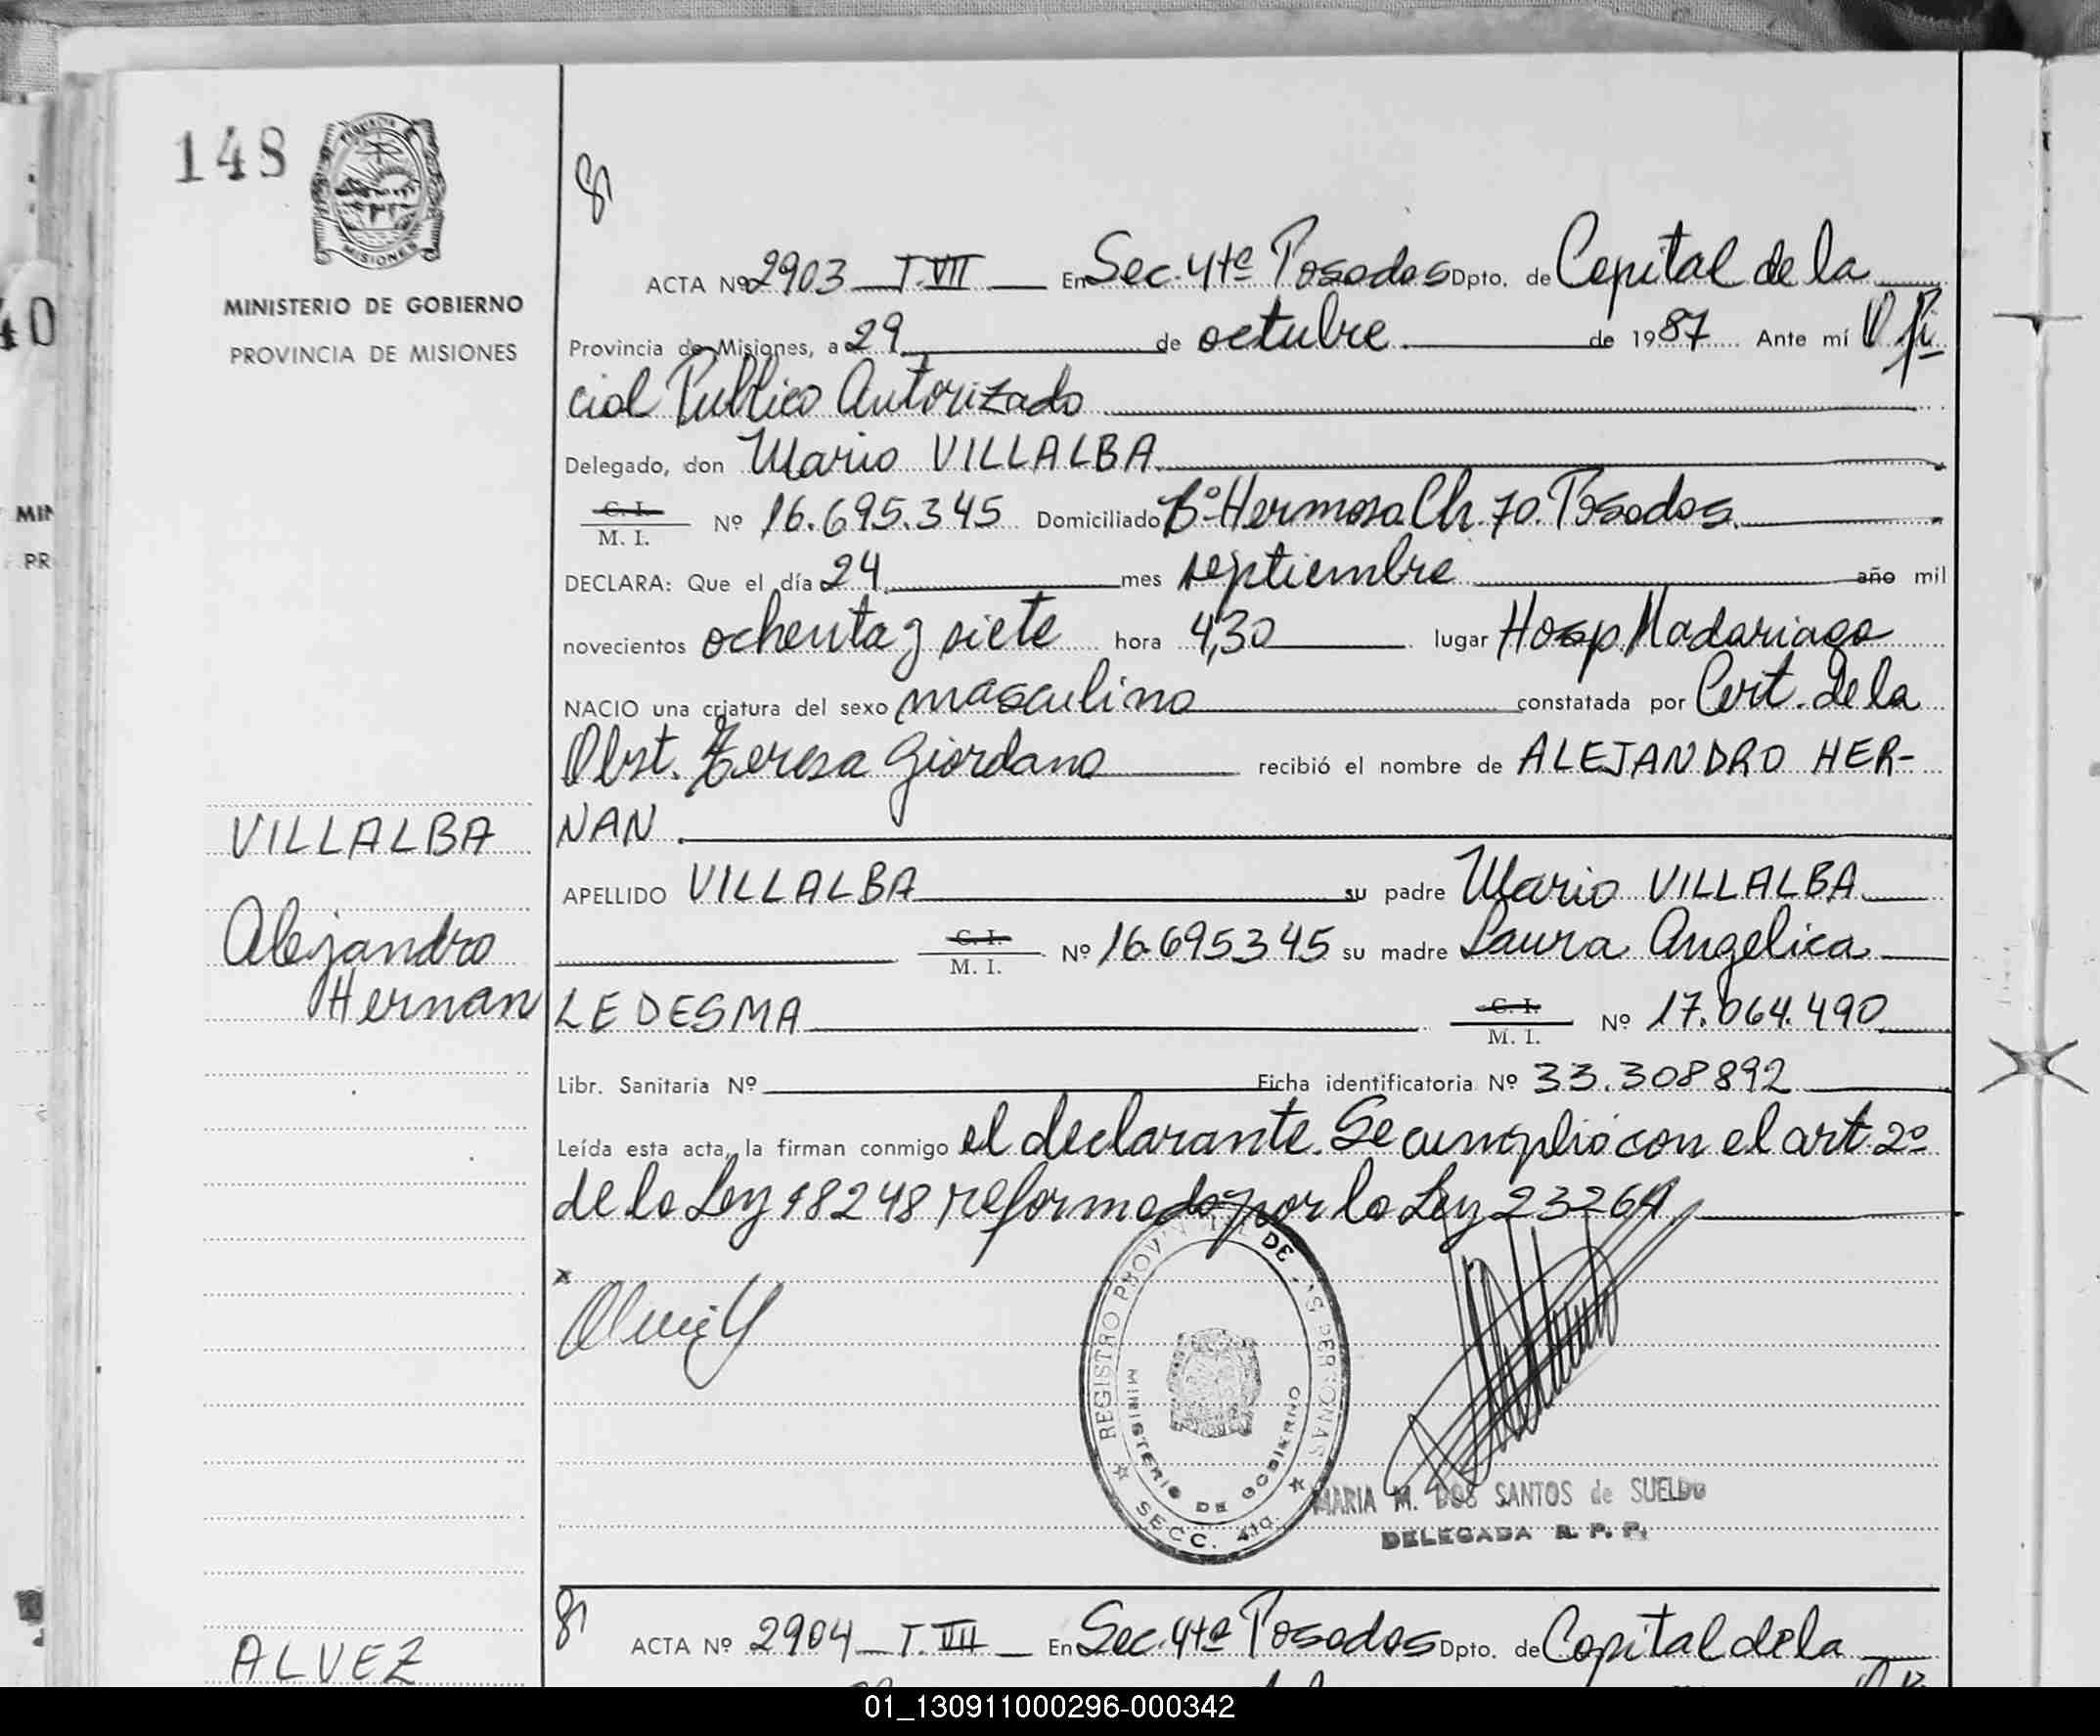 148
MINISTERIO DE GOBIERNO
PROVINCIA DE MISIONES
ACTA Nº 2903 T.VII En Sec. 4ta Posadas Dpto. de Capital de la
Provincia de Misiones, a 29 de octubre de 1987 Ante mí Ofi-
cial Publico Autorizado
Delegado, don Mario VILLALBA
C. I.
M. I. Nº 16.695.345 Domiciliado Bº Hermoso Ch. 70. Posadas
DECLARA: Que el día 24 mes septiembre año mil
novecientos ochenta y siete hora 4,30 lugar Hosp. Madariaga
NACIO una criatura del sexo masculino constatada por Cert. de la
Obst. Teresa Giordano recibió el nombre de ALEJANDRO HER-
NAN
VILLALBA
Alejandro
Hernan
APELLIDO VILLALBA su padre Mario VILLALBA
C. I.
M. I. Nº 16.695345 su madre Laura Angelica
LEDESMA C. I.
M. I. Nº 17.064.490
Libr. Sanitaria Nº Ficha identificatoria Nº 33.308892
Leída esta acta, la firman conmigo el declarante. Se cumplio con el art. 2º
de la Ley 18248 reformada por la Ley 23264
REGISTRO PROVINCIAL DE LAS PERSONAS
MINISTERIO DE GOBIERNO
SECC. 4ta.
MARIA M. DOS SANTOS de SUELDO
DELEGADA R. P. P.
ALVEZ
ACTA Nº 2904 T.VII En Sec. 4ta Posadas Dpto. de Capital de la
40
MIN
PR
01_130911000296-000342